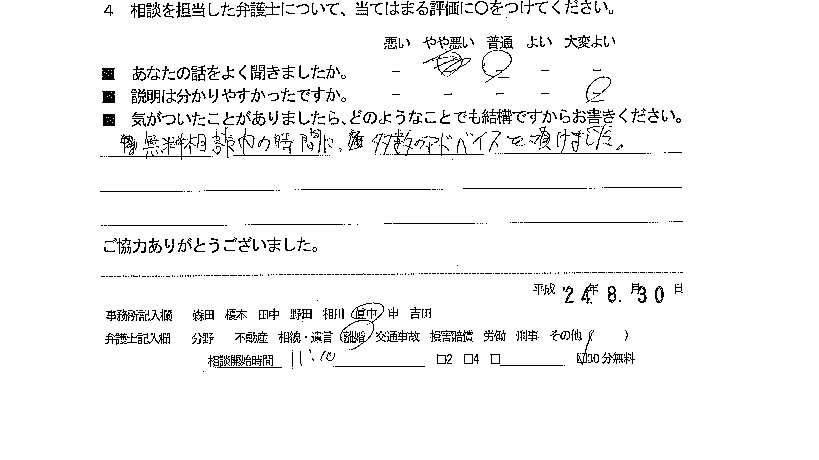 4 相談を担当した弁護士について、当てはまる評価に〇をつけてください。
悪い やや悪い 普通 よい 大変よい
■ あなたの話をよく聞きましたか。 － － － － －
■ 説明は分かりやすかったですか。 － － － － －
■ 気がついたことがありましたら、どのようなことでも結構ですからお書きください。
無料相談内の時間に、多数のアドバイスを頂けました。
ご協力ありがとうございました。
平成 24年 8.月30 日
事務所記入欄 森田 榎本 田中 野田 相川 畠中 申 吉田
弁護士記入欄 分野 不動産 相続・遺言 離婚 交通事故 損害賠償 労働 刑事 その他 ( )
相談開始時間 11:10 □2 □4 □ ☑30 分無料